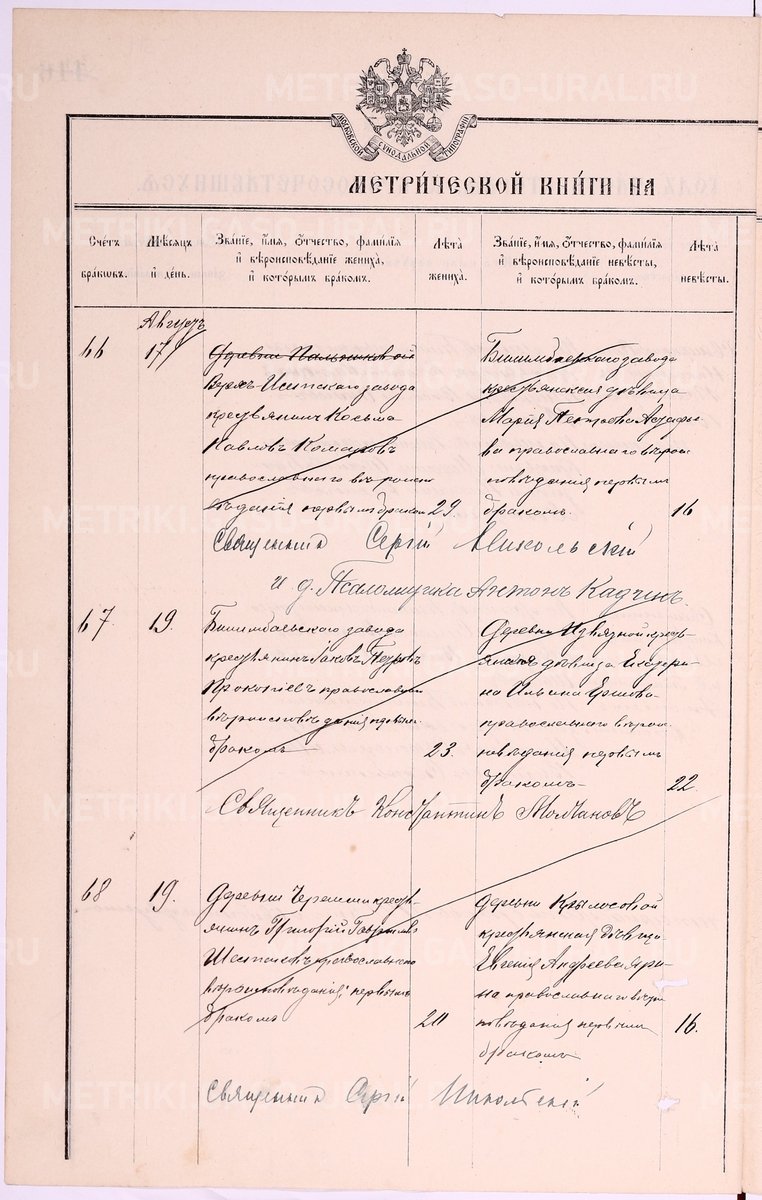 МОСКОВСКОЙ СИНОДАЛЬНОЙ ТИПОГРАФІИ
МЕТРИ́ЧЕСКОЙ КНИ́ГИ НА
Сче́тъ бра́кωвъ.
Мѣ́сяцъ и҆ де́нь.
Зва́нїе, и҆́мя, ѻ҆́тчество, фами́лїя и҆ вѣроисповѣ́данїе жениха̀, и҆ кото́рымъ бра́комъ.
Лѣ́та жениха̀.
Зва́нїе, и҆́мя, ѻ҆́тчество, фами́лїя и҆ вѣроисповѣ́данїе невѣ́сты, и҆ кото́рымъ бра́комъ.
Лѣ́та невѣ́сты.
Августъ
66
17
Деревни
Верхъ-Исетскаго завода
крестьянинъ Косьма
Павловъ Комаровъ
православнаго вѣроис-
вѣданія первымъ бракомъ
29
Билимбаевскаго завода
крестьянская дѣвица
Марія Петрова Астафье-
ва православнаго вѣроис-
повѣданія первымъ
бракомъ.
16
Священникъ Сергій Никольскій
и д. Псаломщика Антонъ Кадчинъ.
67.
19
Билимбаевскаго завода
крестьянинъ Іаковъ Петровъ
Прокопіевъ православнаго
вѣроисповѣданія первымъ
бракомъ
23.
Деревни крест-
янская дѣвица Екатери-
на Ильина Ершова
православнаго вѣроис-
повѣданія первымъ
бракомъ
22.
Священникъ Константинъ Молчановъ
68
19.
Деревни Черемши кресть-
янинъ Григорій Гавріиловъ
православнаго
вѣроисповѣданія, первымъ
бракомъ
20
Деревни Крылосовой
крестьянская дѣвица
Евгенія Андреева Яри-
на православнаго вѣрои-
повѣданія первымъ
бракомъ
16.
Священникъ Сергій Никольскій
METRIKI.GASO-URAL.RU